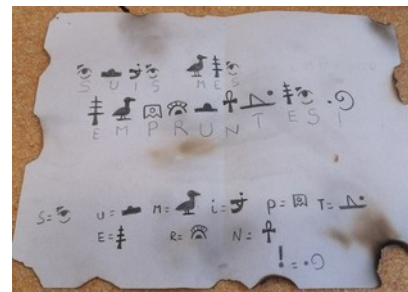 SUIS MES
EMPRUNTES!
S= U= M= i= P= T=
E= R= N=
!=